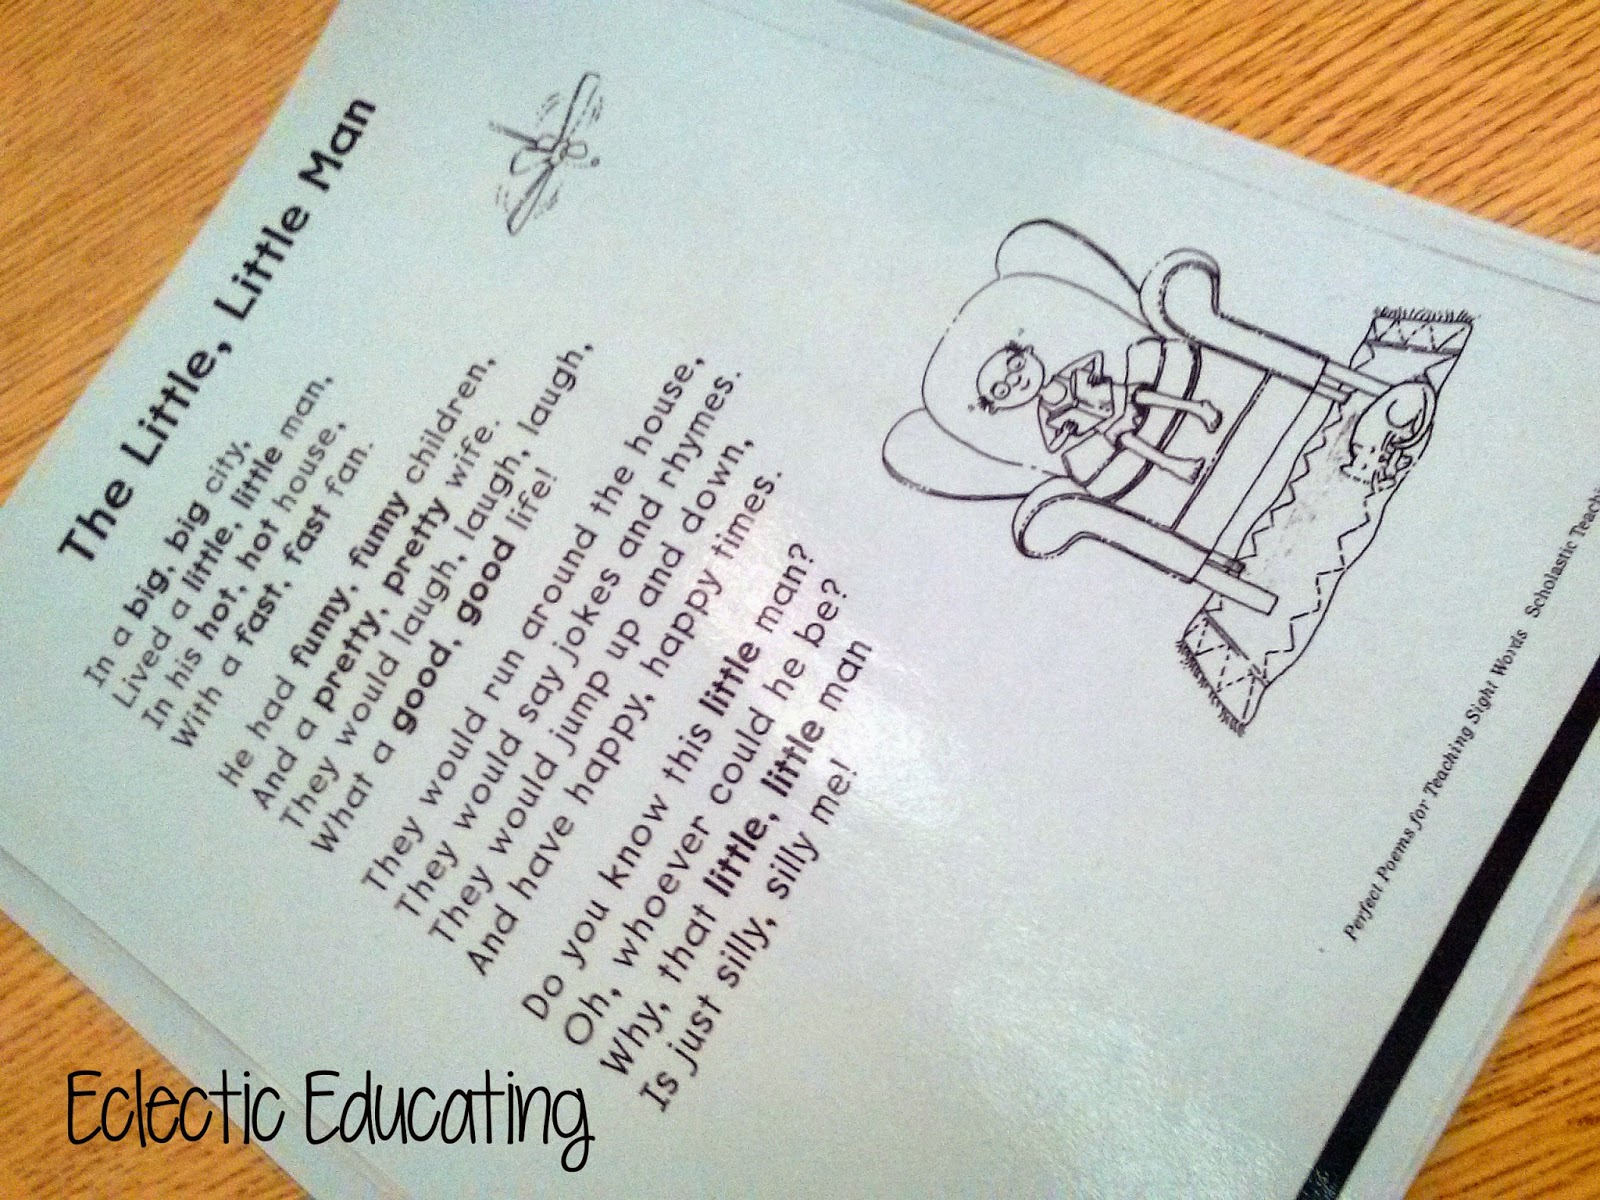 The Little, Little Man
In a big, big city,
Lived a little, little man,
In his hot, hot house,
With a fast, fast fan.
He had funny, funny children,
And a pretty, pretty wife.
They would laugh, laugh, laugh, laugh,
What a good, good life!
They would run around the house,
They would say jokes and rhymes.
They would jump up and down,
And have happy, happy times.
Do you know this little man?
Oh, whoever could he be?
Why, that little, little man
Is just silly, silly me!
Perfect Poems for Teaching Sight Words Scholastic
Eclectic Educating